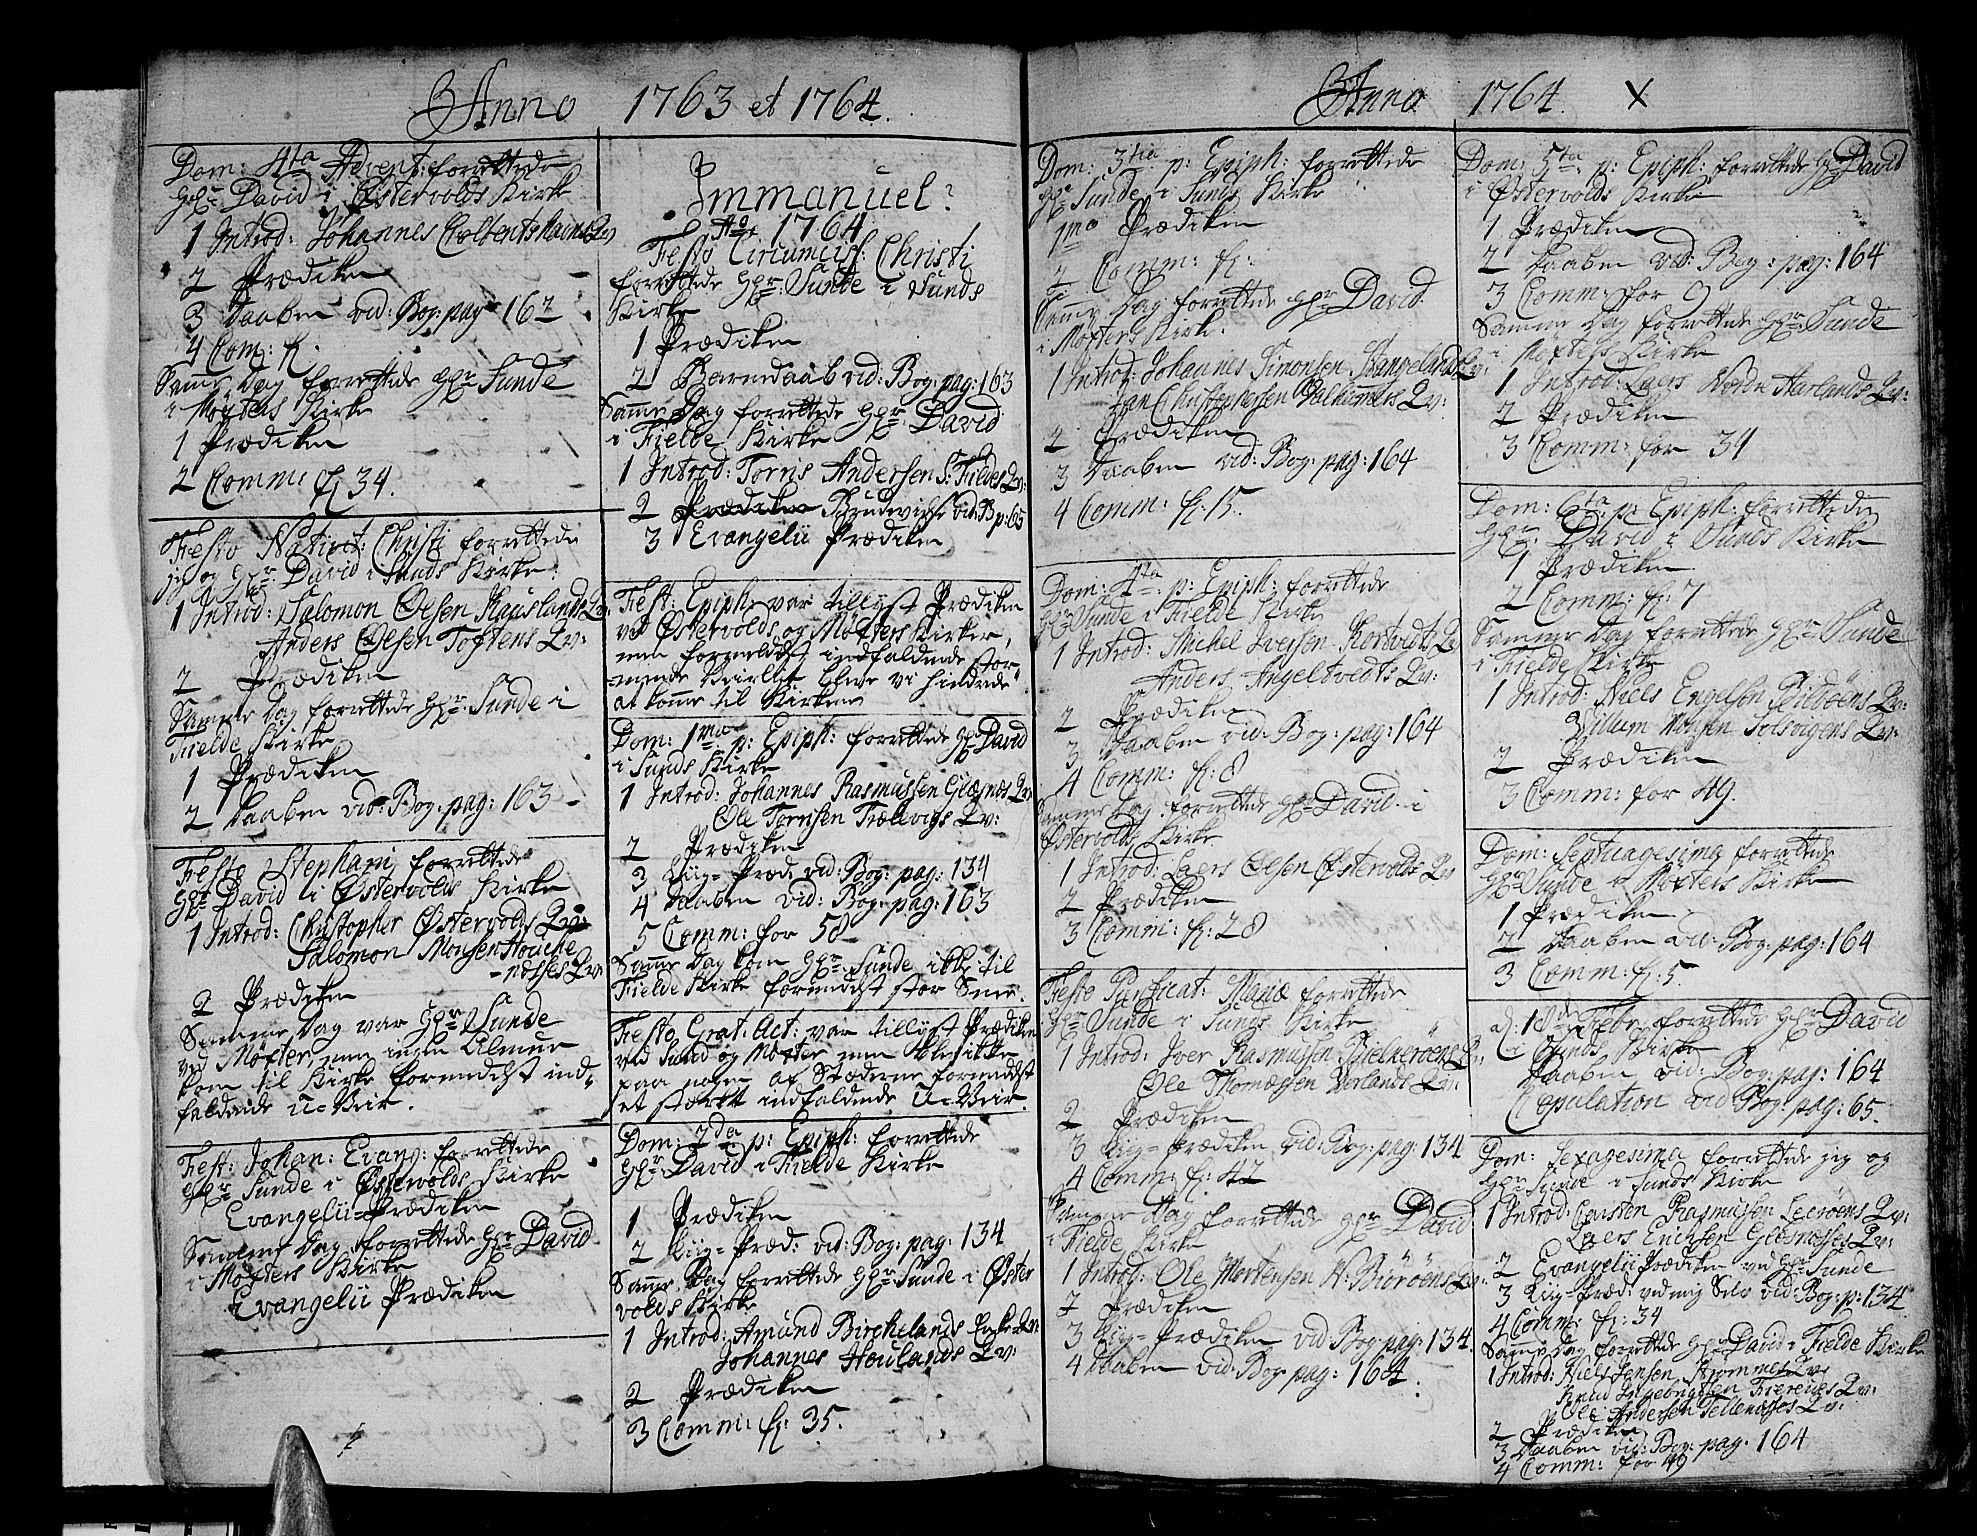 Anno 1763 et 1764.
Dom: 4ta Advent: forrettede
Hr. David i Østervolds Kirke
1 Introd: Johannes Qv:
2 Prædiken
3 Daaben vid: Bog: pag: 162
4 Com: f.
Samme Dag forrettede Hr. Sunde
i Møgsters Kirke
1 Prædiken
2 Comm: f. 34.
Festo Nativit: Christi forrettede
jeg og Hr. David i Sunds Kirke.
1 Introd: Salomon Olsen Hauslands Qv:
Anders Olsen Toftens Qv:
2 Prædiken
Samme Dag forrettede Hr. Sunde i
Fielde Kirke
1 Prædiken
2 Daaben vid: Bog: pag: 163
Festo Stephani forrettede
Hr. David i Østervolds Kirke
1 Introd: Christopher Østervolds Qv:
Salomon Monsen Houche
-næsses Qv:
2 Prædiken
Samme Dag var Hr. Sunde
ved Møgster, men ingen Almue
kom til Kirke formedelst ind-
faldende U-Veir.
Fest: Johan: Evang: forrettede
Hr. Sunde i Østervolds Kirke
Evangelii-Prædiken
Samme Dag forrettede Hr. David
i Møgsters Kirke
Evangelii Prædiken
Immanuel!
Ao. 1764
Festo Circumcis: Christi
forrettede Hr. Sunde i Sunds
Kirke
1 Prædiken
2 Barnedaab vid: Bog: pag: 163
Samme Dag forrettede Hr. David
i Fielde Kirke
1 Introd: Torris Andersen S: Fieldes Qv:
2 Prædiken Brudvielse vid: B p: 65
3 Evangelii Prædiken
Fest: Epiph: var tillyst Prædiken
ved Østervolds og Møgsters Kirker,
men formedelst indfaldende stor-
mende bleve vi hindrede
at komme til Kirkerne
Dom: 1ma p: Epiph: forrettede Hr. David
i Sunds Kirke
1 Introd: Johannes Rasmussen Glæsnæs Qv:
Ole Tornsen Trællevigs Qv:
2 Prædiken
3 Liig-Præd: vid: Bog: pag: 134
4 Daaben vid: Bog: pag: 163
5 Comm: for 58
Samme Dag kom Hr. Sunde ikke til
Fielde Kirke formedelst stor Snee.
Festo Grat: Act: var tillyst Prædiken
ved Sund og Møgster men blev ikke
paa nogen af Stæderne formedelst
et stærkt indfaldende U-Veir.
Dom: 2da p: Epiph: forrettede
Hr. David i Fielde Kirke
1 Prædiken
2 Liig-Præd: vid: Bog: pag: 134
Samme Dag forrettede Hr. Sunde i Øster
volds Kirke
1 Introd: Amund Birchelands Enke
Johannes Houlands Qv:
2 Prædiken
3 Comm: f: 35.
Anno 1764. X
Dom: 3tia p: Epiph: forrettede
Hr. Sunde i Sunds Kirke
1mo Prædiken
2 Comm: f:
Samme Dag forrettede Hr. David
i Møgsters Kirke.
1 Introd: Johannes Simonsen Stangelands Qv:
Jan Christophersen Qv:
2 Prædiken
3 Daaben vid: Bog: pag: 164
4 Comm: f: 15.
Dom: 4ta p: Epiph: forrettede
Hr. Sunde i Fielde Kirke
1 Introd: Michel Iversen Kortvedts Qv
Anders Angeltvedts Qv:
2 Prædiken
3 Daaben vid: Bog: pag: 164
4 Comm: f: 8
Samme Dag forrettede Hr. David i
Østervolds Kirke
1 Introd: Laers Olsen Østervolds Qv
2 Prædiken
3 Comm: f: 28
Festo Purificat: Mariæ forrettede
Hr. Sunde i Sunds Kirke
1 Introd: Iver Rasmussen Bielkerøens Qv:
Ole Thomæssen Vorlands Qv:
2 Prædiken
3 Liig-Prædiken vid: Bog: pag: 134
4 Comm: f: 42
Samme Dag forrettede Hr. David
i Fielde Kirke
1 Introd: Ole Mortensen N: Biöröens Qv:
2 Prædiken
3 Liig-Prædiken vid Bog: pag: 134.
4 Daaben vid: Bog: pag: 164.
Dom: 5ta p: Epiph: forrettede Hr. David
i Østervolds Kirke
1 Prædiken
2 Daaben vid: Bog: pag: 164
3 Comm: for 9
Samme Dag forrettede Hr. Sunde
i Møgsters Kirke
1 Introd: Laers Nordre Havlands Qv:
2 Prædiken
3 Comm: for 34
Dom: 6ta p: Epiph: forrettede
Hr. David i Sunds Kirke
1 Prædiken
2 Comm: f: 7
Samme Dag forrettede Hr. Sunde
i Fielde Kirke
1 Introd: Niels Engelsen Qv:
Willum Monsen Solsvigens Qv:
2 Prædiken
3 Comm: for 49.
Dom: Septuagesima forrettede
Hr. Sunde i Møgsters Kirke
1 Prædiken
2 Daaben vid: Bog: pag: 164
3 Comm: f: 5.
d: 18de Febr: forrettede Hr. David
i Sunds Kirke
Daaben vid: Bog: pag: 164
Copulation vid Bog: pag: 65.
Dom: Sexagesima forrettede jeg og
Hr. Sunde i Sunds Kirke
1 Introd: Carsten Rasmussen Leerøens Qv:
Laers Erichsen Glesnæsses Qv:
2 Evangelii Prædiken ved Hr. Sunde
3 Liig-Præd: ved mig Selv vid: Bog: p: 134
4 Comm: f: 34
Samme Dag forrettede Hr. David i Fielde Kirke
1 Introd: Niels Jensen Strømmes Qv:
Knud Ingebrigtsen Qv:
Ole Andersen Tellenæsses Qv:
2 Prædiken
3 Daaben vid: Bog: pag. 164
4 Comm: for 49